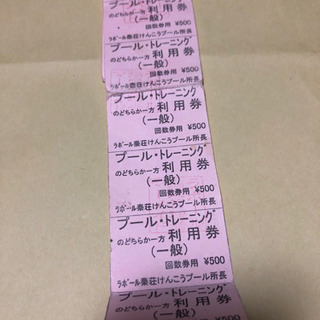 プール・トレーニング
のどちらか一方 利用券
(一般)
回数券用 ¥500
ラポール秦荘けんこうプール所長
プール・トレーニング
のどちらか一方 利用券
(一般)
回数券用 ¥500
ラポール秦荘けんこうプール所長
プール・トレーニング
のどちらか一方 利用券
(一般)
回数券用 ¥500
ラポール秦荘けんこうプール所長
プール・トレーニング
のどちらか一方 利用券
(一般)
回数券用 ¥500
ラポール秦荘けんこうプール所長
プール・トレーニング
のどちらか一方 利用券
(一般)
回数券用 ¥500
ラポール秦荘けんこうプール所長
プール・トレーニング
のどちらか一方 利用券
(一般)